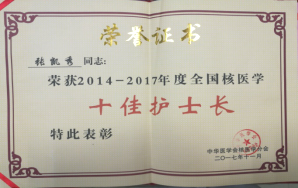 荣誉证书
张凯秀 同志：
荣获2014-2017年度全国核医学
十佳护士长
特此表彰
中华医学会核医学分会
二〇一七年十一月